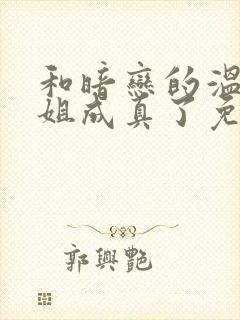 和暗戀的溫
姐成真了免
郭興艷